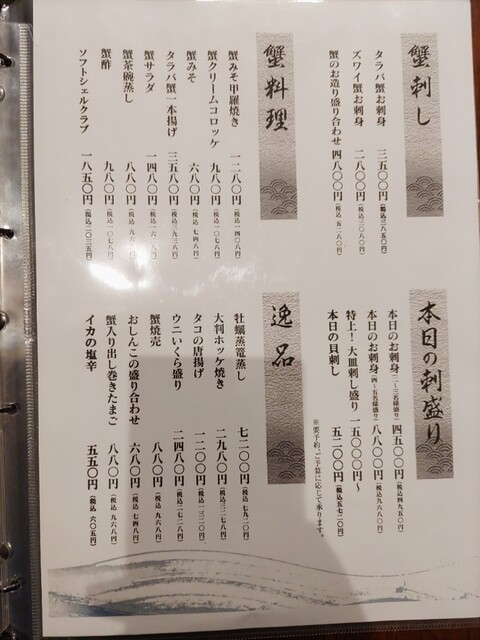 蟹刺し
タラバ蟹お刺身 三五〇〇円(税込三八五〇円)
ズワイ蟹お刺身 二八〇〇円(税込三〇八〇円)
蟹のお造り盛り合わせ 四八〇〇円(税込 五二八〇円)
蟹料理
蟹みそ甲羅焼き 一二八〇円(税込 一四〇八円)
蟹クリームコロッケ 九八〇円(税込 一〇七八円)
蟹みそ 六八〇円(税込 七四八円)
タラバ蟹一本揚げ 三五八〇円(税込 三九三八円)
蟹サラダ 一四八〇円(税込 一六二八円)
蟹茶碗蒸し 八八〇円(税込 九六八円)
蟹酢 九八〇円(税込 一〇七八円)
ソフトシェルクラブ 一八五〇円(税込二〇三五円)
本日の刺盛り
本日のお刺身(二〜三名様盛り) 四五〇〇円(税込四九五〇円)
本日のお刺身(四〜五名様盛り) 八八〇〇円(税込九六八〇円)
特上!大皿刺し盛り 一五〇〇〇円〜
本日の貝刺し 五二〇〇円(税込五七二〇円)
※要予約、ご予算に応じて承ります。
逸品
牡蠣蒸篭蒸し 七二〇〇円(税込 七九二〇円)
大判ホッケ焼き 二九八〇円(税込三二七八円)
タコの唐揚げ 一二〇〇円(税込一三二〇円)
ウニいくら盛り 二四八〇円(税込二七二八円)
蟹焼売 八八〇円(税込 九六八円)
おしんこの盛り合わせ 六八〇円(税込 七四八円)
蟹入り出し巻きたまご 八八〇円(税込 九六八円)
イカの塩辛 五五〇円(税込 六〇五円)